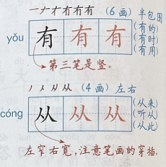 一ナオ有有有 (6画) 半包围
yǒu 有 有 有 (有的) (有时) (有用)
第三笔是竖。
丿人从从 (4画) 左右
cóng 从 从 从 (从小) (听从) (从此)
左窄右宽,注意笔画的穿插。